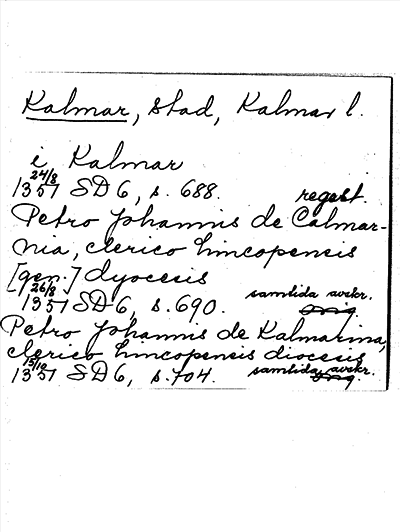 Kalmar, stad, Kalmar l.
i Kalmar
24/8
1357 SD 6, s. 688. regest.
Petro Johannis de Calmar-
nia, clerico lincopensis
[gen.] dyocesis
26/8
1357 SD 6, s. 690. samtida avskr.
Petro Johannis de Kalmarina,
clerico lincopensis diocesis
15/10
1357 SD 6, s. 704. samtida avskr.